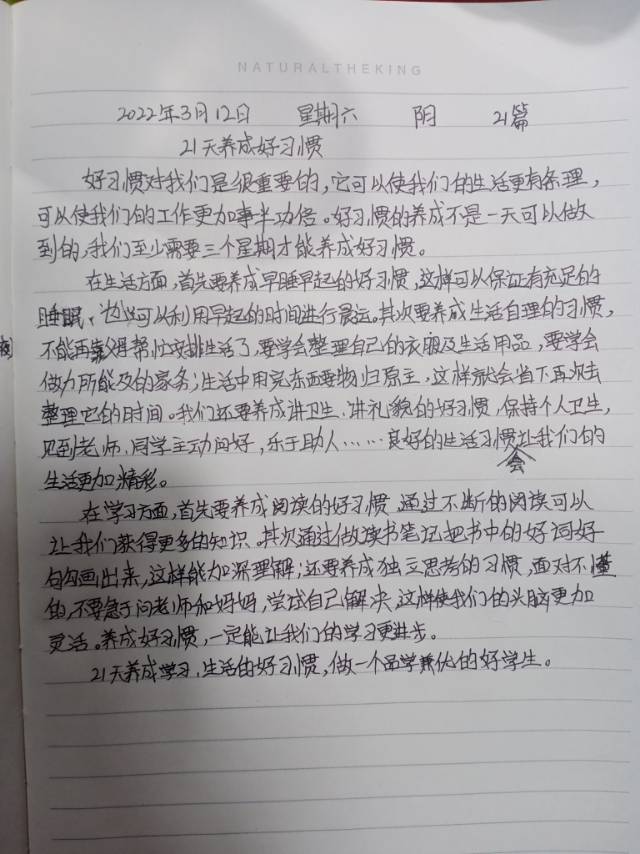 NATURALTHEKING
2022年3月12日 星期六 阴 21篇
21天养成好习惯
好习惯对我们是很重要的，它可以使我们的生活更有条理，
可以使我们的工作更加事半功倍。好习惯的养成不是一天可以做
到的，我们至少需要三个星期才能养成好习惯。
在生活方面，首先要养成早睡早起的好习惯，这样可以保证有充足的
睡眠，也可以利用早起的时间进行晨运。其次要养成生活自理的习惯，
不能再靠父母帮忙安排生活了，要学会整理自己的衣服及生活用品，要学会
做力所能及的家务；生活中用完东西要物归原主，这样就会省下再次去
整理它的时间。我们还要养成讲卫生、讲礼貌的好习惯，保持个人卫生，
见到老师、同学主动问好，乐于助人……良好的生活习惯会让我们的
生活更加精彩。
在学习方面，首先要养成阅读的好习惯，通过不断的阅读可以
让我们获得更多的知识。其次通过做读书笔记把书中的好词好
句勾画出来，这样能加深理解；还要养成独立思考的习惯，面对不懂
的，不要急于问老师和妈妈，尝试自己解决，这样使我们的头脑更加
灵活。养成好习惯，一定能让我们的学习更进步。
21天养成学习、生活的好习惯，做一个品学兼优的好学生。